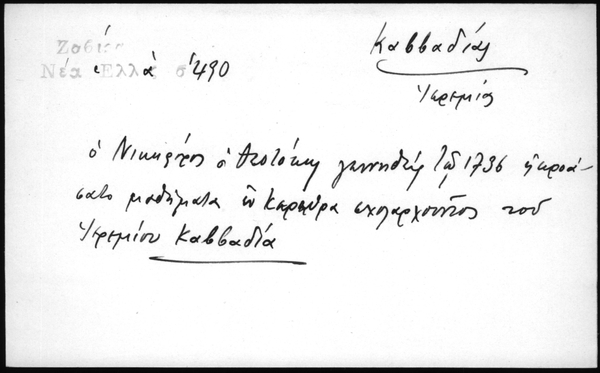 Ζαβίρα
Νέα Ἑλλάς σ. 490
Καββαδίας
Ἱερεμίας
ὁ Νικηφόρος ὁ Θεοτόκης γεννηθείς τῷ 1736 ἠκροά-
σατο μαθήματα ἐν Κερκύρᾳ σχολαρχοῦντος τοῦ
Ἱερεμίου Καββαδία